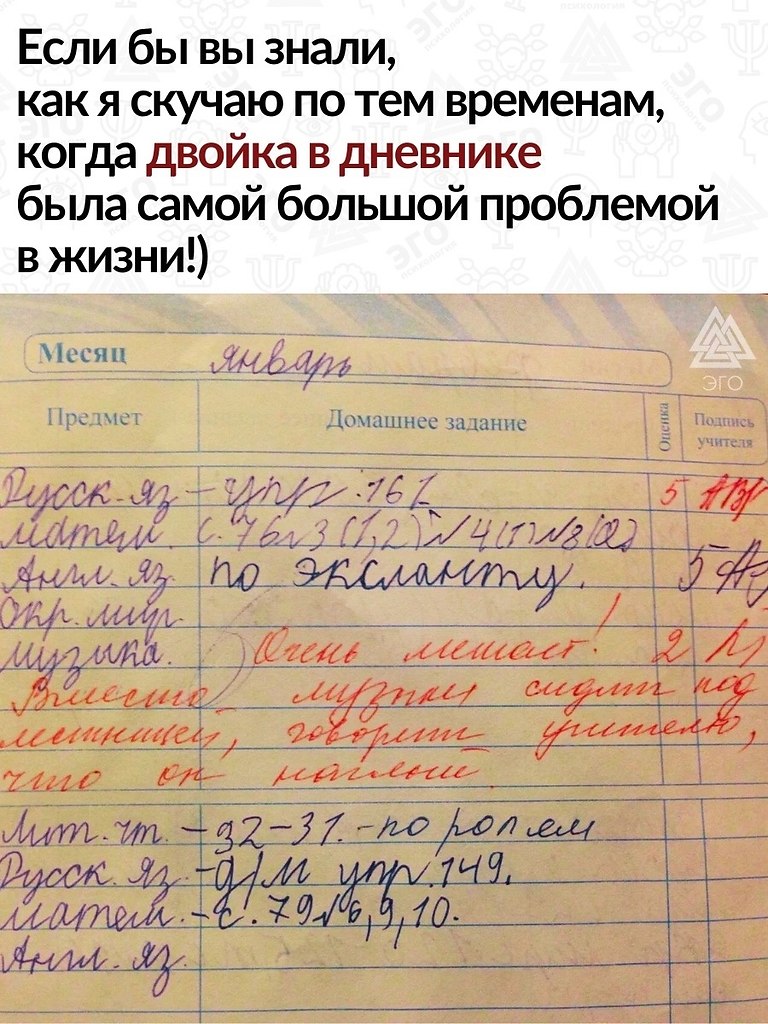 Если бы вы знали,
как я скучаю по тем временам,
когда двойка в дневнике
была самой большой проблемой
в жизни!)
ЭГО
Месяц январь
Предмет Домашнее задание Оценка Подпись учителя
Русск. яз – упр. 161 5
матем. с. 76 №3 (1,2) №4(1) №8
Англ. яз. по эксланту. 5
Окр. мир.
музыка. Очень мешает! 2
Вместо музыки сидит под
лестницей, говорит учителю,
что он наглый
Лит. чт. – 32–31. – по ролям
Русск. яз. – д/м упр. 149.
матем. – с. 79 №6, 9, 10.
Англ. яз.